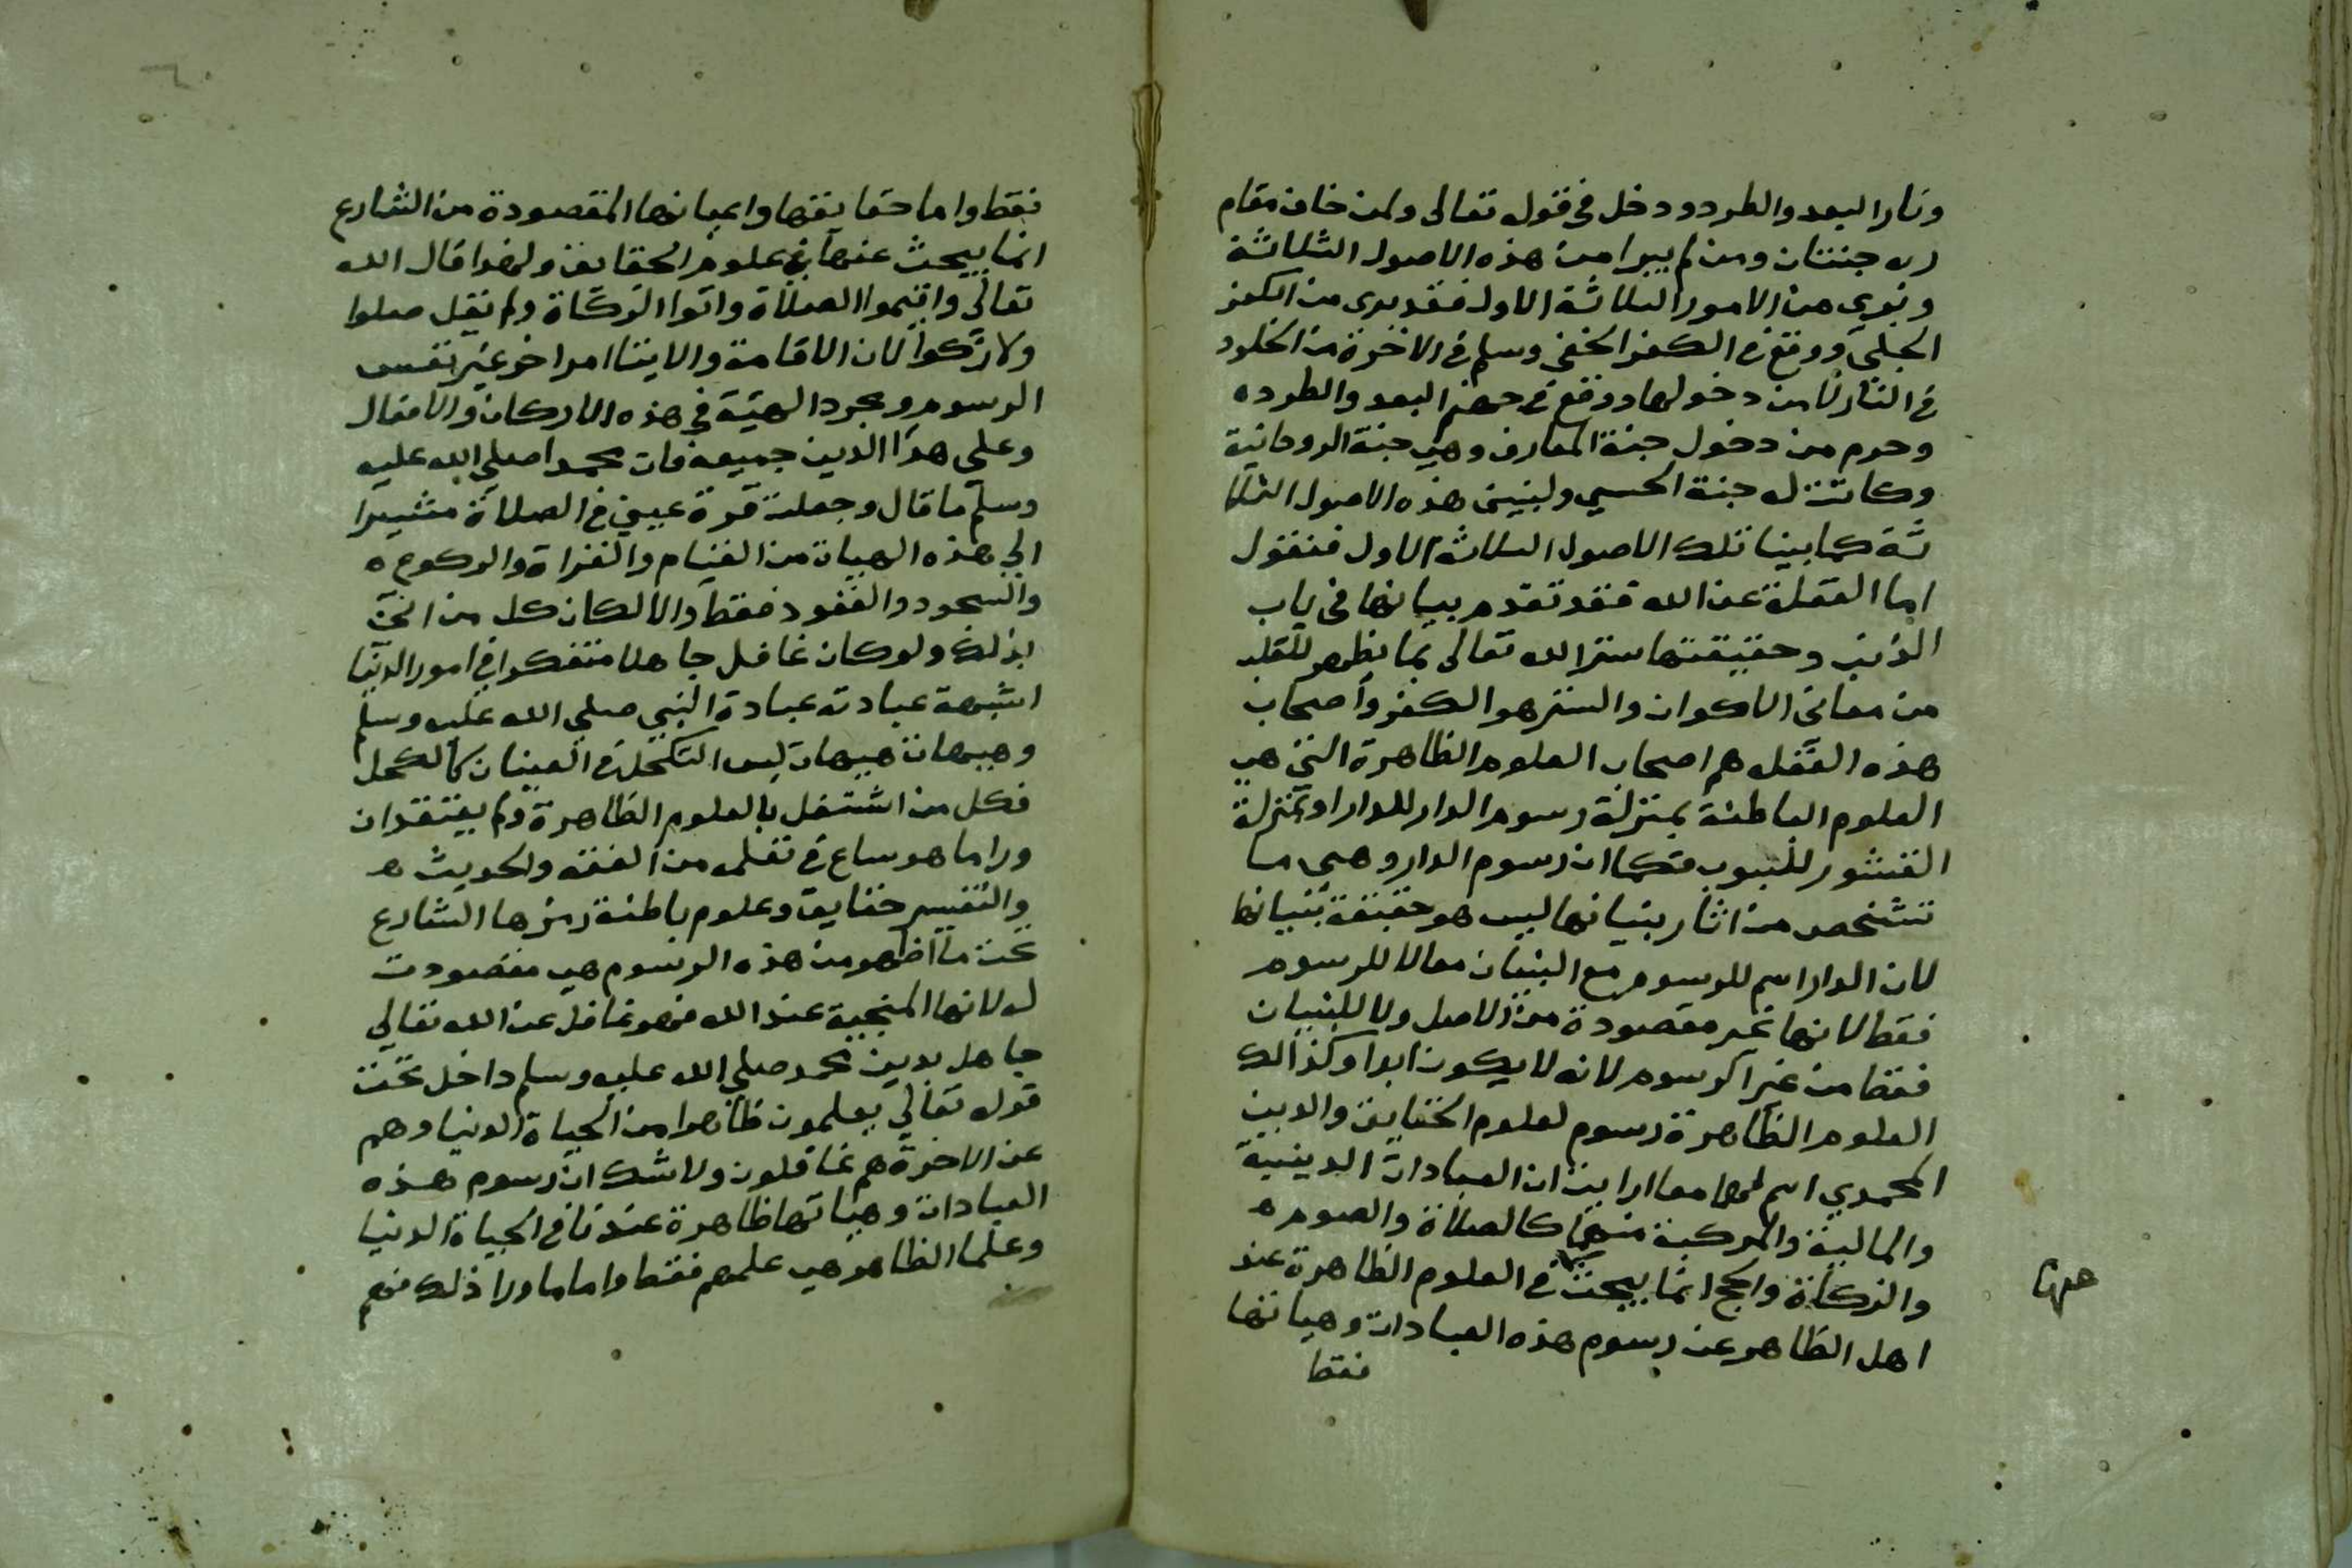 ونار البعد والطرد ودخل في قوله تعالى ولمن خاف مقام
ربه جنتان ومن لم يبرا من هذه الاصول الثلاثة
وبرى من الامور الثلاثة الاول فقد برى من الكفر
الجلي ووقع في الكفر الخفي وسلم في الاخرة من الخلود
في النار لا من دخولها ووقع في جهنم البعد والطرده
وحرم من دخول جنة المعارف وهي جنة الروحانية
وكانت له جنة الحسي ولنبين هذه الاصول الثلا
ثة كما بينا تلك الاصول الثلاثة الاول فنقول
اما الغفلة عن الله فقد تقدم بيانها في باب
الذنب وحقيقتها ستر الله تعالى بما يظهر للقلب
من معاني الاكوان والستر هو الكفر واصحاب
هذه الغفله هم اصحاب العلوم الظاهرة التي هي
العلوم الباطنة بمنزلة رسوم الدار للدار او بمنزلة
القشور للبوب فكما ان رسوم الدار وهي ما
تشخص من اثار بنيانها ليس هو حقيقة بنيانها
لان الدار اسم للرسوم مع البنيان معا لا للرسوم
فقط لانها غير مقصودة من الاصل ولا للبنيان
فقط من غير الرسوم لانه لا يكون ابدا وكذالك
العلوم الظاهرة رسوم لعلوم الحقايق والدين
المحمدي اسم لهما معا ارايت ان العبادات الدينية
والمالية والمركبة منهما كالصلاة والصوم ه
والزكاة والحج انما يبحث في العلوم الظاهرة عند
اهل الظاهر عن رسوم هذه العبادات وهياتها
فقط
عنها
فقط واما حقايقها واعيانها المقصودة من الشارع
انما يبحث عنها في علوم الحقايق ولهذا قال الله
تعالى واقيموا الصلاة واتوا الزكاة ولم يقل صلوا
ولا زكوا لان الاقامة والايتا امر اخر غير نفس
الرسوم ومجرد الهيئة في هذه الاركان والافعال
وعلى هذا الدين جميعه فان محمدا صلي الله عليه
وسلم ما قال وجعلت قرة عيني في الصلاة مشيرا
الي هذه الهيات من القيام والقراة والركوع ه
والسجود والقعود فقط والا لكان كل من اتى
بذلك ولو كان غافل جاهلا متفكرا في امور الدنيا
اشبهة عبادته عبادة النبي صلي الله عليه وسلم
وهيهات هيهات ليس التكحل في العينان كالكحل
فكل من اشتغل بالعلوم الظاهرة ولم يعتقد ان
ورا ما هو ساع في تعلمه من الفقه والحديث ه
والتفسير حقايق وعلوم باطنة رمزها الشارع
تحت ما اظهر من هذه الرسوم هي مقصودت
له لانها المنجية عند الله فهو غافل عن الله تعالي
جاهل بدين محمد صلي الله عليه وسلم داخل تحت
قوله تعالي يعلمون ظاهرا من الحياة الدنيا وهم
عن الاخرة هم غافلون ولا شك ان رسوم هذه
العبادات وهياتها ظاهرة عندنا في الحياة الدنيا
وعلما الظاهر هي علمهم فقط واما ما ورا ذلك فهم